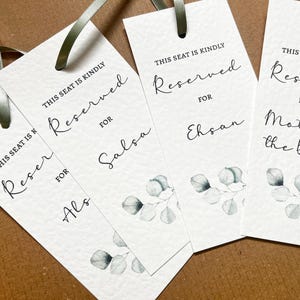 THIS SEAT IS K
Reser
FOR
Als
THIS SEAT IS KINDLY
Reserved
FOR
Salsa
THIS SEAT IS KINDLY
Reserved
FOR
Ehsan
THIS
Res
Mot
the b